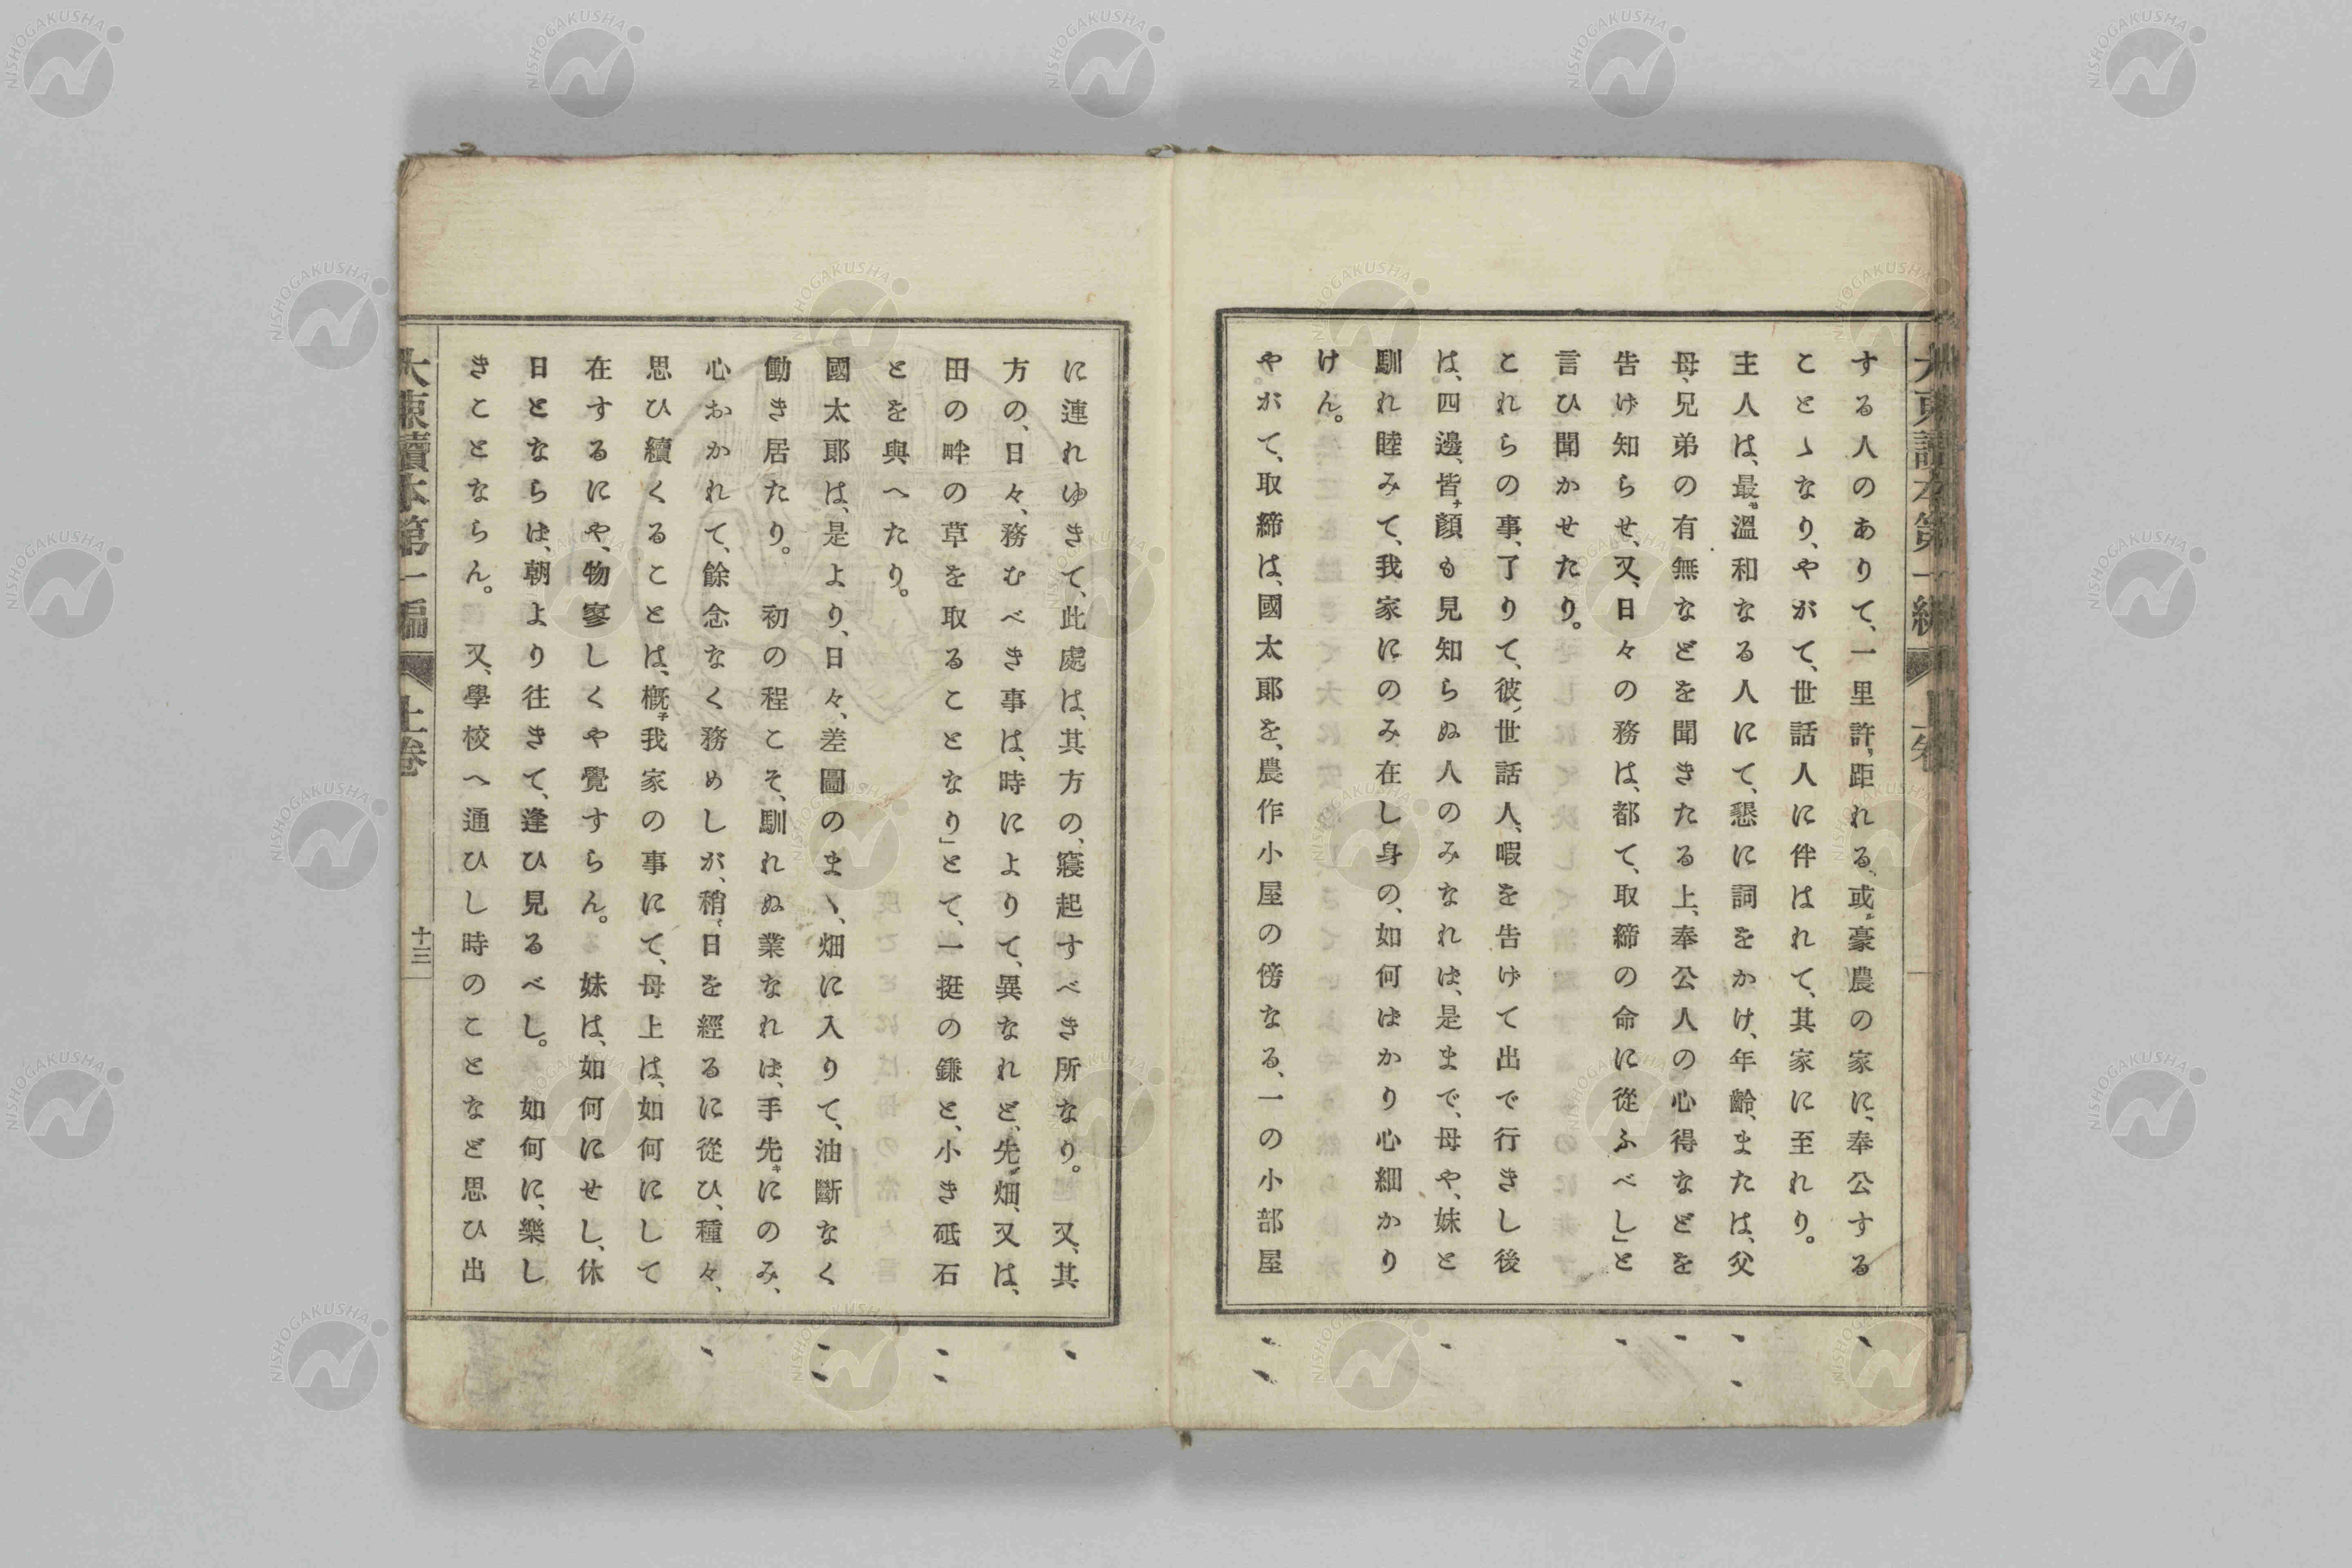 する人のありて、一里許、距れる、或ル豪農の家に、奉公する
ことゝなり、やがて、世話人に伴はれて、其家に至れり。
主人は、最モ溫和なる人にて、懇に詞をかけ、年齡、または、父
母、兄弟の有無などを聞きたる上、奉公人の心得などを
告げ知らせ、又、日々の務は、都て、取締の命に從ふべし」と
言ひ聞かせたり。
これらの事、了りて、彼ノ世話人、暇を告げて出で行きし後
は、四邊、皆ナ顏も見知らぬ人のみなれは、是まで、母や、妹と
馴れ睦みて、我家にのみ在し身の、如何はかり心細かり
けん。
やがて、取締は、國太郎を、農作小屋の傍なる、一の小部屋
に連れゆきて、此處は、其方の、寢起すべき所なり。又、其
方の、日々、務むべき事は、時によりて、異なれど、先ヅ畑、又は、
田の畔の草を取ることなり」とて、一挺の鎌と、小き砥石
とを與へたり。
國太郎は、是より、日々、差圖のまヽ、畑に入りて、油斷なく
働き居たり。初の程こそ、馴れぬ業なれは、手先キにのみ、
心おかれて、餘念なく務めしが、稍、日を經るに從ひ、種々、
思ひ續くることは、槪子我家の事にて、母上は、如何にして
在するにや、物寥しくや覺すらん。妹は、如何にせし、休
日とならは、朝より往きて、逢ひ見るべし。如何に、樂し
きことならん。又、學校へ通ひし時のことなど思ひ出
大東讀本第一編 上卷
十三